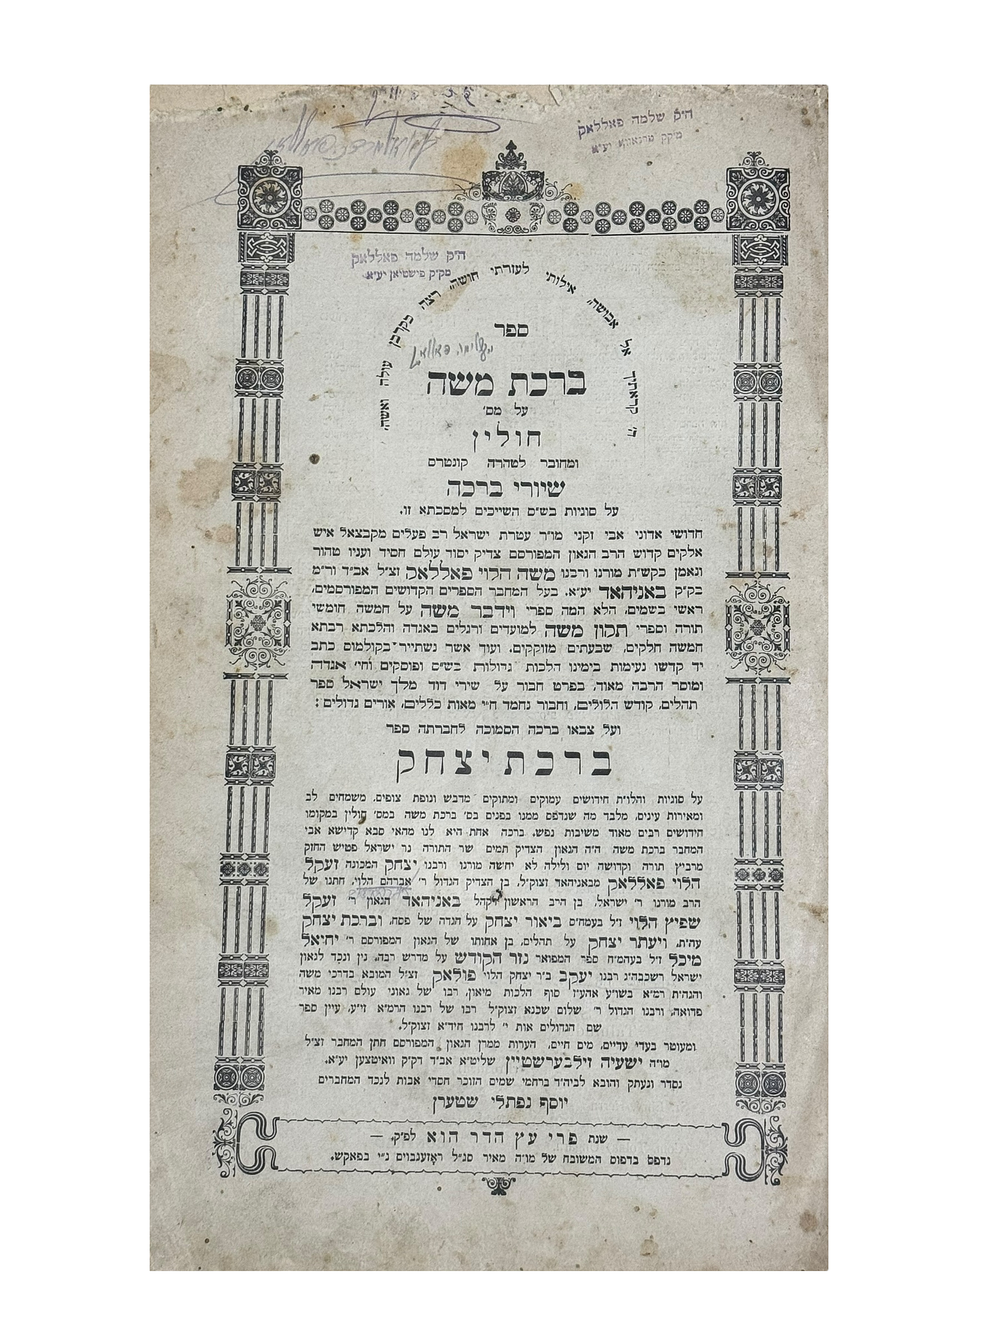 הק' שלמה פאללאק
הק' שלמה פאללאק
ה' קראתיך אל אבושה, אילותי לעזרתי חושה, רצה מקרבן עולה ואשה,
ספר
ברכת משה
על מס'
חולין
ומחובר לטהרה קונטרס
שיורי ברכה
על סוגיות בש״ס השייכים למסכתא זו.
חדושי אדוני אבי זקני מו״ר עטרת ישראל רב פעלים מקבצאל איש
אלקים קדוש הרב הגאון המפורסם צדיק יסוד עולם חסיד ועניו טהור
ונאמן כקש״ת מורנו ורבנו משה הלוי פאללאק זצ״ל אב״ד ור״מ
בק״ק באניהאד יע״א. בעל המחבר הספרים הקדושים המפורסמים,
ראשי בשמים, הלא המה ספרי וידבר משה על חמשה חומשי
תורה וספרי תקון משה למועדים ורגלים באגדה והלכתא רבתא
חמשה חלקים, שבעתים מזוקקים. ועוד אשר נשתייר בקולמוס כתב
יד קדשו נעימות בימינו הלכות גדולות בש״ס ופוסקים וחי' אגדה
ומוסר הרבה מאוד, בפרט חבור על שירי דוד מלך ישראל ספר
תהלים, קודש הלולים, וחבור נחמד ח״י מאות כללים, אורים גדולים :
ועל צבאו ברכה הסמוכה לחברתה ספר
ברכת יצחק
על סוגיות והלו״ת חידושים עמוקים ומתוקים מדבש ונופת צופים. משמחים לב
ומאירות עינים. מלבד מה שנדפס ממנו בפנים בס' ברכת משה במס' חולין במקומו
חידושים רבים מאוד משיבות נפש. ברכה אחת היא לנו מהאי סבא קדישא אבי
המחבר ברכת משה ה״ה הגאון הצדיק תמים שר התורה נר ישראל פטיש החזק
מרביץ תורה וקדושה יום ולילה לא יחשה מורנו ורבנו יצחק המכונה זעקל
הלוי פאללאק מבאניהאד זצוק״ל, בן הצדיק הגדול ר' אברהם הלוי, חתנו של
הרב מורנו ר' ישראל, בן הרב הראשון לקהל באניהאד הגאון ר' זעקל
שפיץ הלוי ז״ל בעמח״ס ביאור יצחק על הגדה של פסח, וברכת יצחק
עה״ת, ויעתר יצחק על תהלים, בן אחותו של הגאון המפורסם ר' יחיאל
מיכל ז״ל בעהמ״ח ספר המפואר נזר הקודש על מדרש רבה, נין ונכד לגאון
ישראל רשכבה״ג רבנו יעקב ב״ר יצחק הלוי פולאק זצ״ל המובא בדרכי משה
והגה״ת רמ״א בשו״ע אהע״ז סוף הלכות מיאון, רבו של גאוני עולם רבנו מאיר
פדואה, ורבנו הגדול ר' שלום שכנא זצוק״ל רבו של רבנו הרמ״א זי״ע, עיין ספר
שם הגדולים אות י' לרבנו חיד״א זצוק״ל.
ומעוטר בעדי עדיים, מים חיים, הערות ממרן הגאון המפורסם חתן המחבר זצ״ל
מו״ה ישעיה זילבערשטיין שליט״א אב״ד דק״ק וואיטצען יע״א.
נסדר ונעתק והובא לביה״ד ברחמי שמים הזוכר חסדי אבות לנכד המחברים
יוסף נפתלי שטערן
— שנת פרי עץ הדר הוא לפ״ק. —
נדפס בדפוס המשובח של מו״ה מאיר סג״ל ראזענבוים נ״י בפאקש.